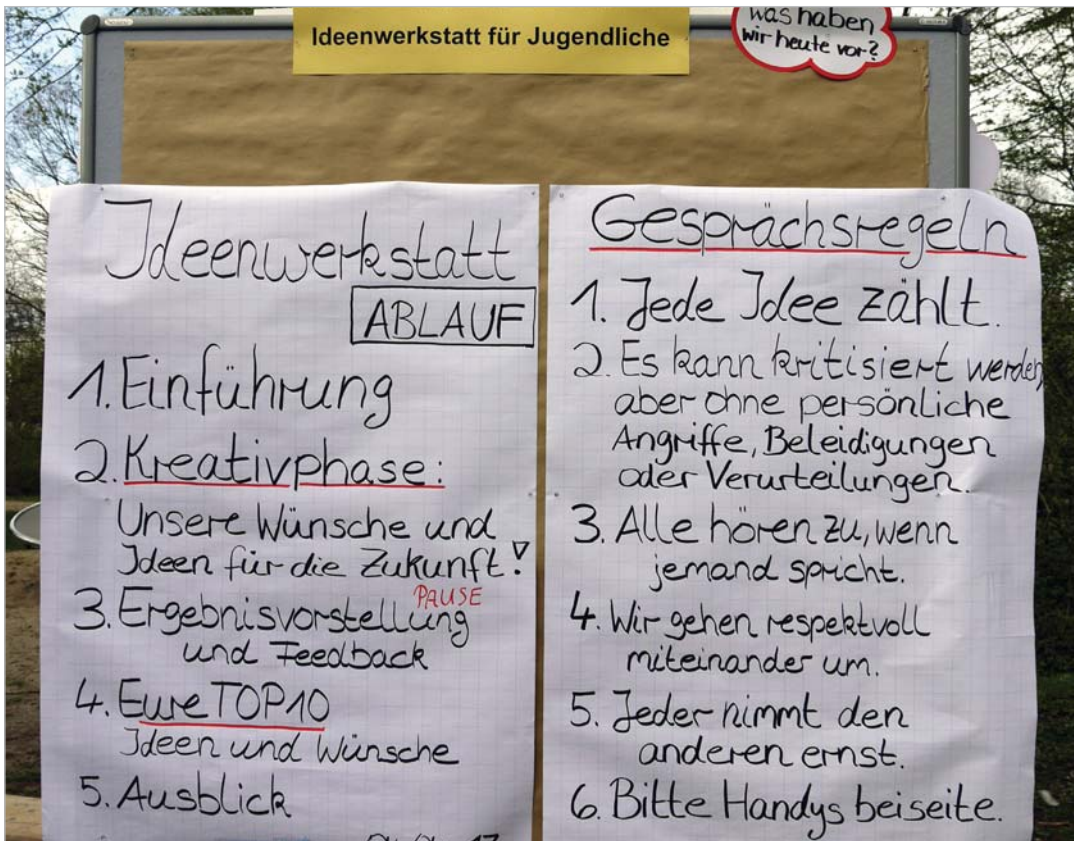 Ideenwerkstatt für Jugendliche
was haben
wir heute vor?
Ideenwerkstatt
ABLAUF
1. Einführung
2. Kreativphase:
Unsere Wünsche und
Ideen für die Zukunft!
PAUSE
3. Ergebnisvorstellung
und Feedback
4. Eure TOP 10
Ideen und Wünsche
5. Ausblick
Gesprächsregeln
1. Jede Idee zählt.
2. Es kann kritisiert werden,
aber ohne persönliche
Angriffe, Beleidigungen
oder Verurteilungen.
3. Alle hören zu, wenn
jemand spricht.
4. Wir gehen respektvoll
miteinander um.
5. Jeder nimmt den
anderen ernst.
6. Bitte Handys beiseite.